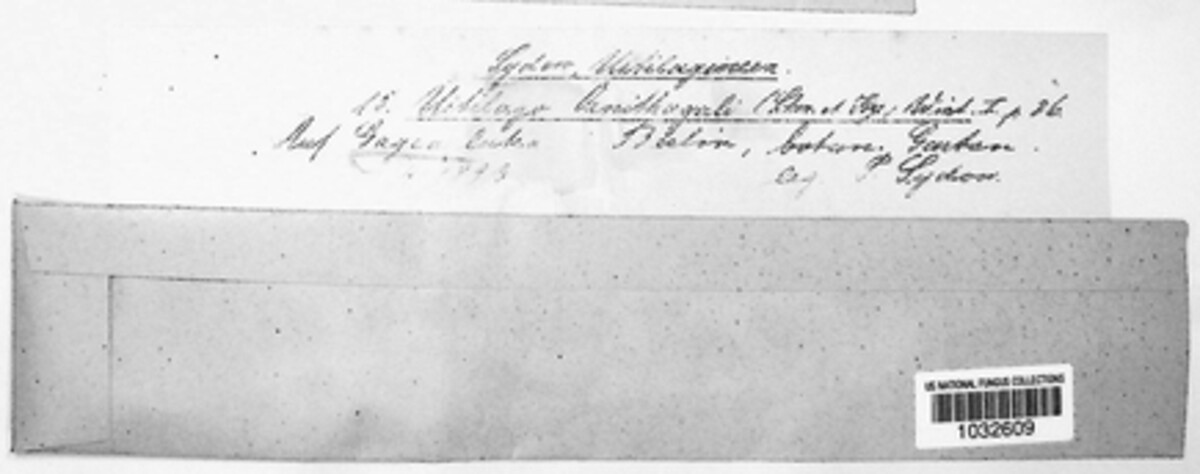 Sydow, Ustilagineen.
15. Ustilago Ornithogali (Schm. et Kze) Wint. I. p. 86.
Auf Gagea lutea Berlin, botan. Garten.
1893
leg. P. Sydow.
US NATIONAL FUNGUS COLLECTIONS
1032609